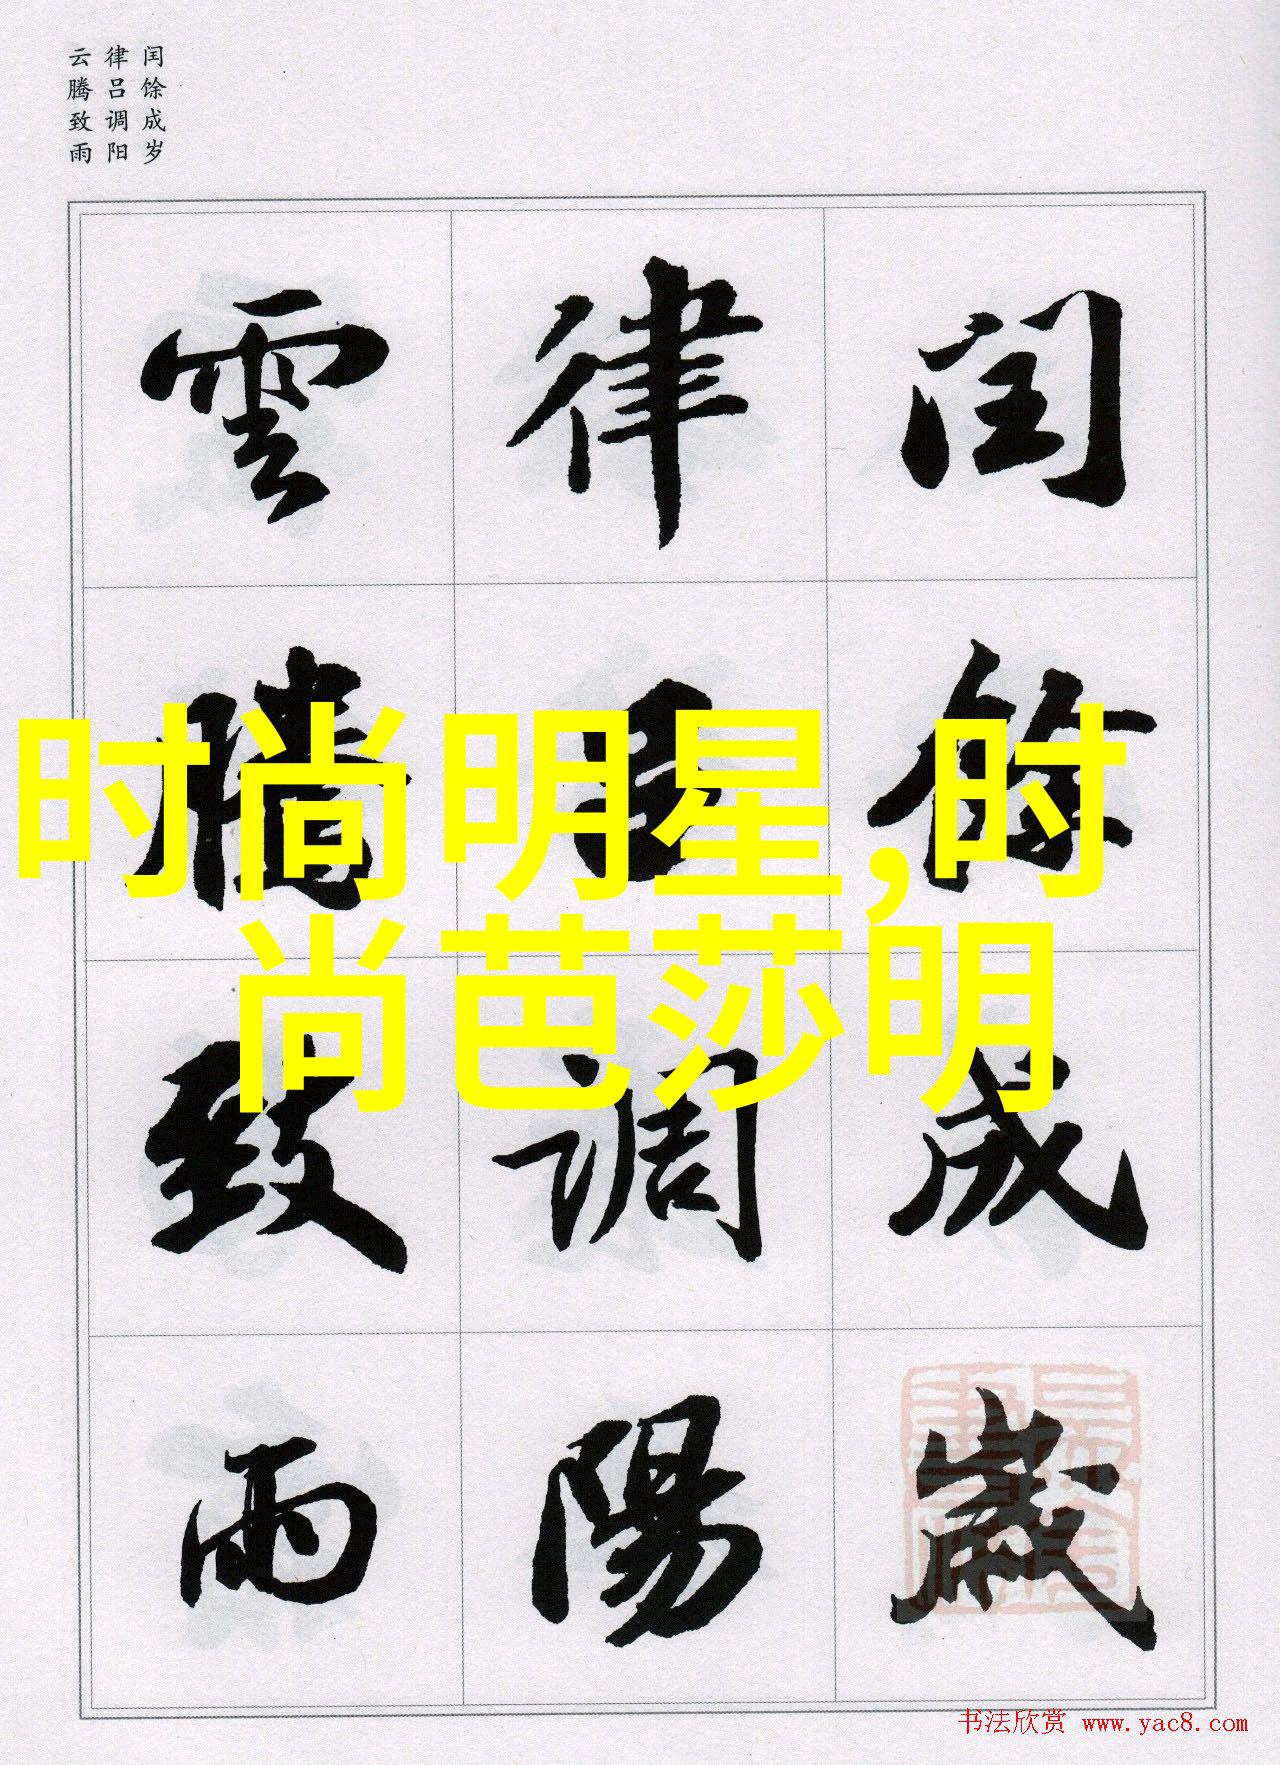 闰馀成岁
律吕调阳
云腾致雨
闰馀成歲
律吕調陽
雲騰致雨
时尚明星,时
尚芭莎明
书法欣赏 www.yac8.com